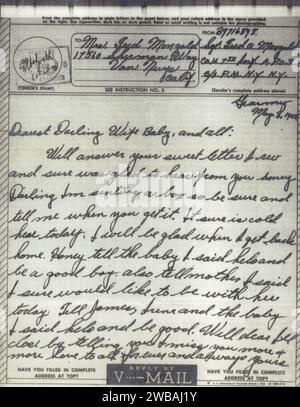 Print the complete address in plain letters in the panel below, and your return address in the space provided
on the right. Use typewriter, dark ink, or dark pencil. Faint or small writing is not suitable for photographing.
To
Mrs.
17560 Sherman Way
Van Nuys
Calif
FROM
(CENSOR'S STAMP)
SEE INSTRUCTION NO. 2
(Sender's complete address above)
Germany
May
Dearest Darling Wife Baby, and all:
Will answer your sweet letter I rec
and sure was glad to hear from you honey
Darling, I'm sending a box so be sure and
tell me when you get it. It sure is cold
here today. I will be glad when I get back
home. Honey tell the baby I said hello and
be a good boy. also tell mother I said
I sure would like to be with her
today. Tell James, June and the baby
I said hello and be good. Well dear I'll
close by telling you I miss you more &
more love to all forever and always yours
HAVE YOU FILLED IN COMPLETE
ADDRESS AT TOP?
REPLY BY
V···—MAIL
HAVE YOU FILLED IN COMPLETE
ADDRESS AT TOP?
alamy
alamy
Image ID: 2WBAJ1Y
www.alamy.com